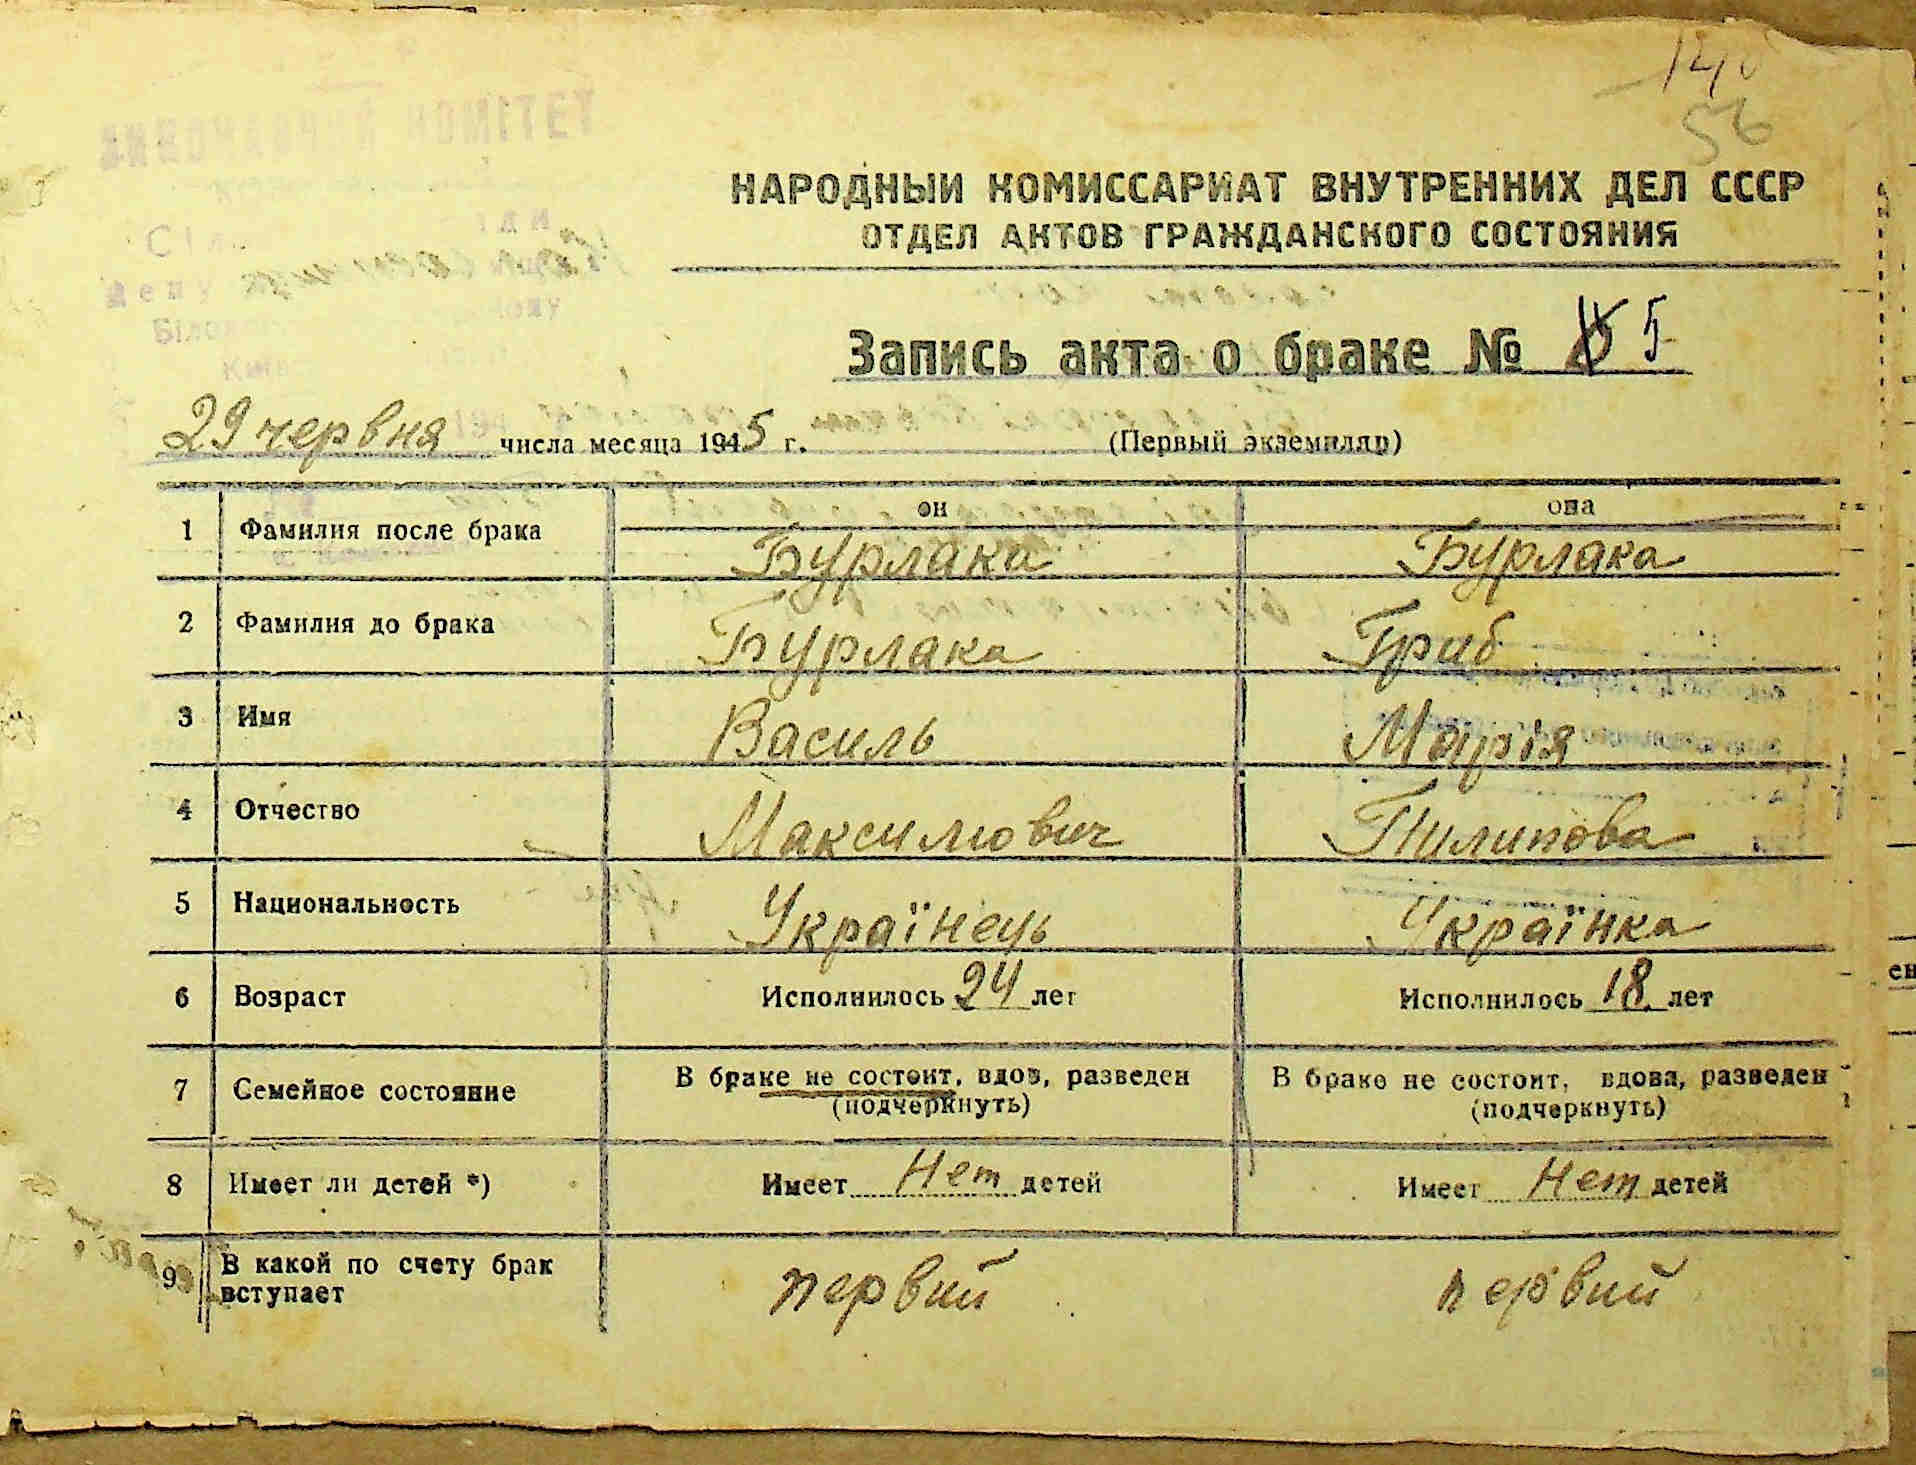 140
56
КОМІТЕТ
НАРОДНЫЙ КОМИССАРИАТ ВНУТРЕННИХ ДЕЛ СССР
ОТДЕЛ АКТОВ ГРАЖДАНСКОГО СОСТОЯНИЯ
Запись акта о браке № 5
29 червня числа месяца 1945 г. (Первый экземпляр)
он она
1 Фамилия после брака Бурлака Бурлака
2 Фамилия до брака Бурлака Гриб
3 Имя Василь Марія
4 Отчество Максимович Пилипова
5 Национальность Українець Українка
6 Возраст Исполнилось 24 лет Исполнилось 18 лет
7 Семейное состояние В браке не состоит, вдов, разведен В браке не состоит, вдова, разведен
(подчеркнуть) (подчеркнуть)
8 Имеет ли детей *) Имеет Нет детей Имеет Нет детей
9 В какой по счету брак первий первий
вступает